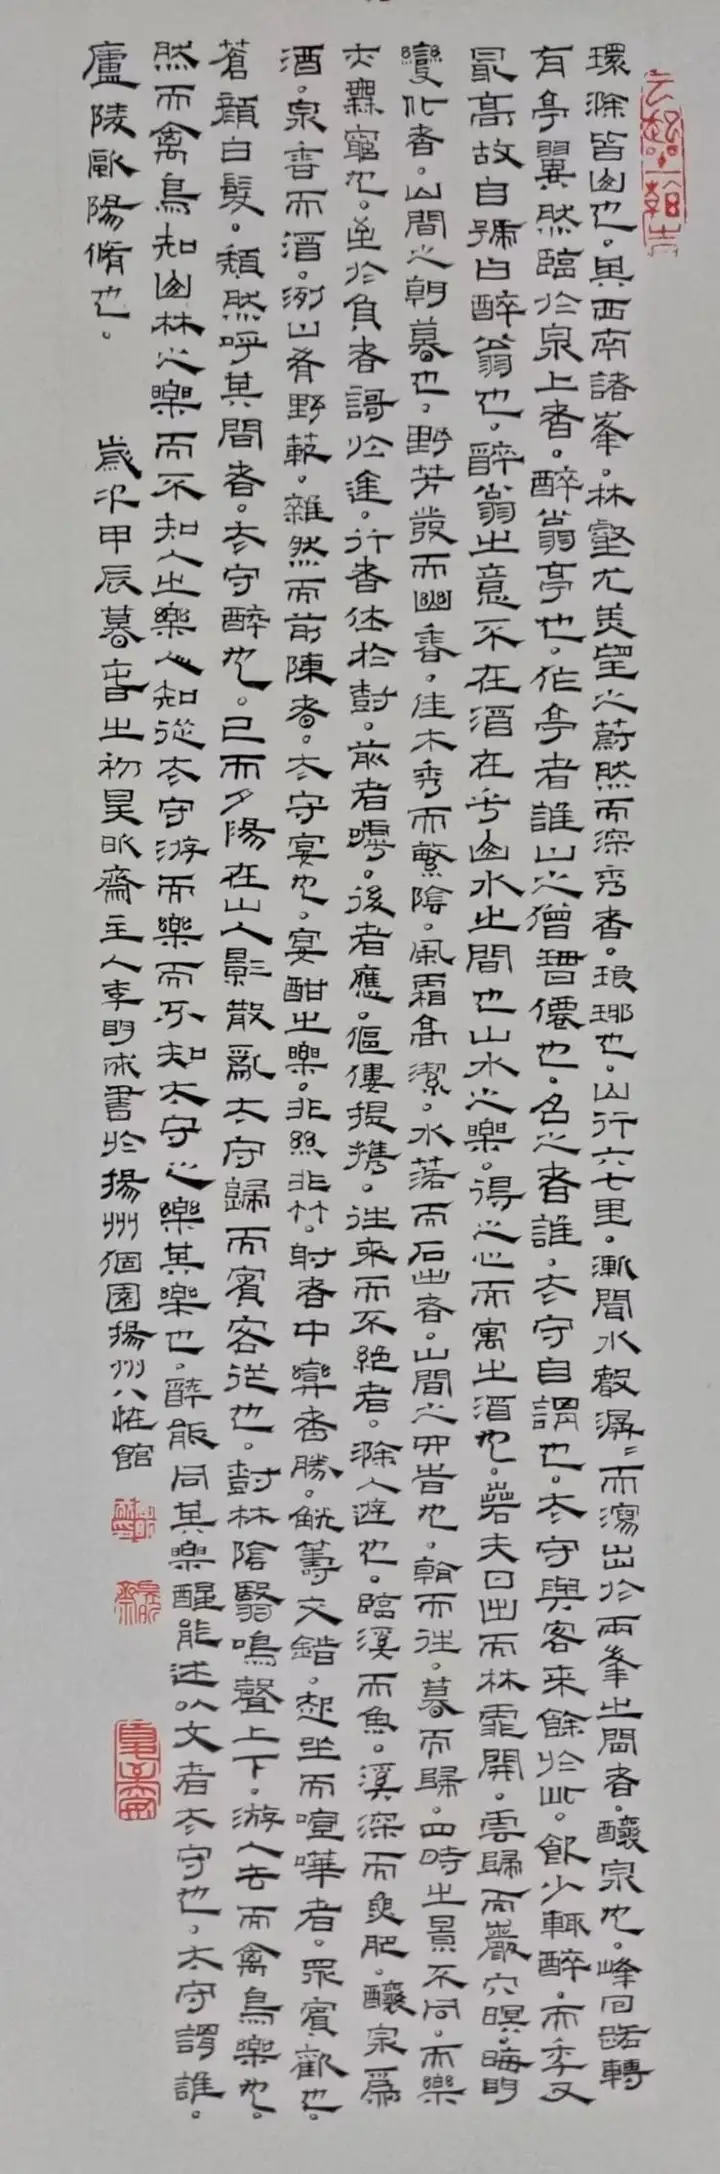 環滁皆山也。其西南諸峯。林壑尤美望之蔚然而深秀者。琅琊也。山行六七里。漸聞水聲潺〻而瀉出於兩峯之間者。釀泉也。峰回路轉
有亭翼然臨於泉上者。醉翁亭也。作亭者誰山之僧智僊也。名之者誰。太守自謂也。太守與客来飲於此。飲少輒醉。而季又
最高故自號曰醉翁也。醉翁之意不在酒在乎山水之間也山水之樂。得之心而寓之酒也。若夫日出而林霏開。雲歸而巖穴暝。晦明
變化者。山間之朝暮也。野芳發而幽香。佳木秀而繁陰。風霜高潔。水落而石出者。山間之四時也。朝而往。暮而歸。四時之景不同。而樂
亦無窮也。至於負者謌於途。行者休於樹。前者嘑。後者應。傴僂提攜。往來而不絕者。滁人遊也。臨溪而魚。溪深而魚肥。釀泉為
酒。泉香而酒洌山肴野蔌。雜然而前陳者。太守宴也。宴酣之樂。非絲非竹。射者中弈者勝。觥籌交錯。起坐而喧嘩者。眾賓歡也。
蒼顏白髮。頹然呼其間者。太守醉也。已而夕陽在山人影散亂太守歸而賓客從也。樹林陰翳鳴聲上下。游人去而禽鳥樂也。
然而禽鳥知山林之樂而不知人之樂人知從太守游而樂而不知太守之樂其樂也。醉能同其樂醒能述以文者太守也。太守謂誰。
廬陵歐陽脩也。 歲次甲辰暮春之初昊昕齋主人李明成書於揚州個園揚州八怪館